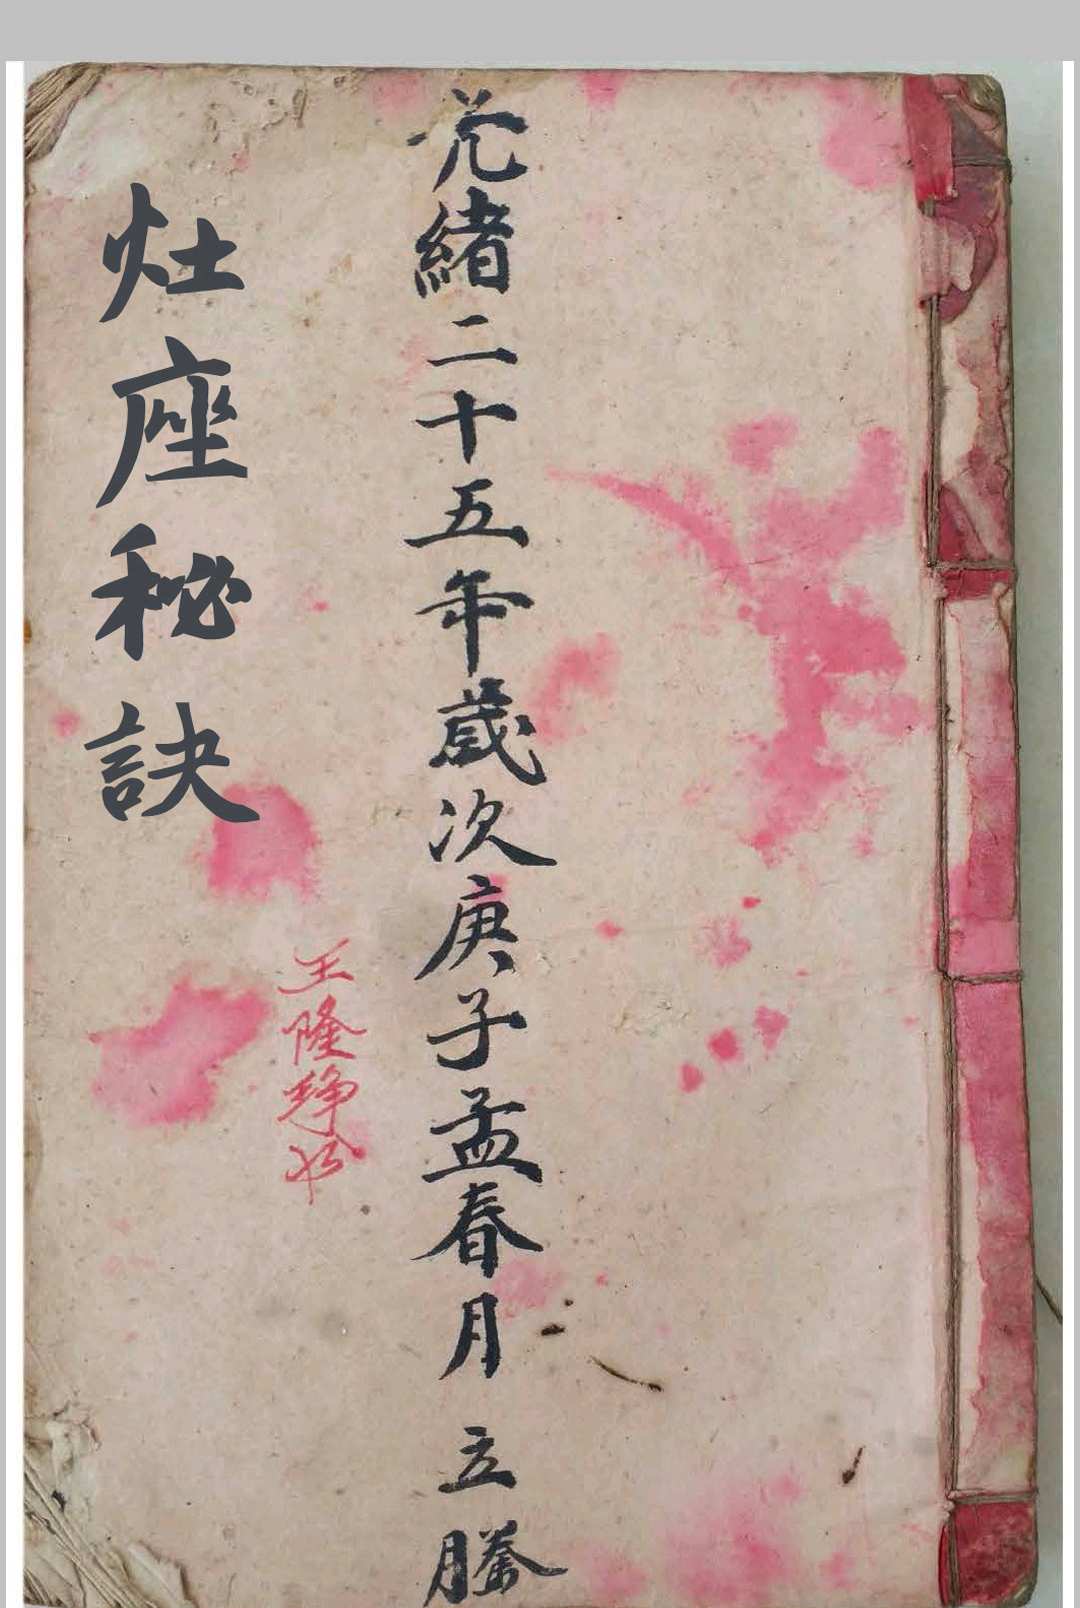 光緒二十五年歲次庚子孟春月 立謄
王隆
灶座秘訣